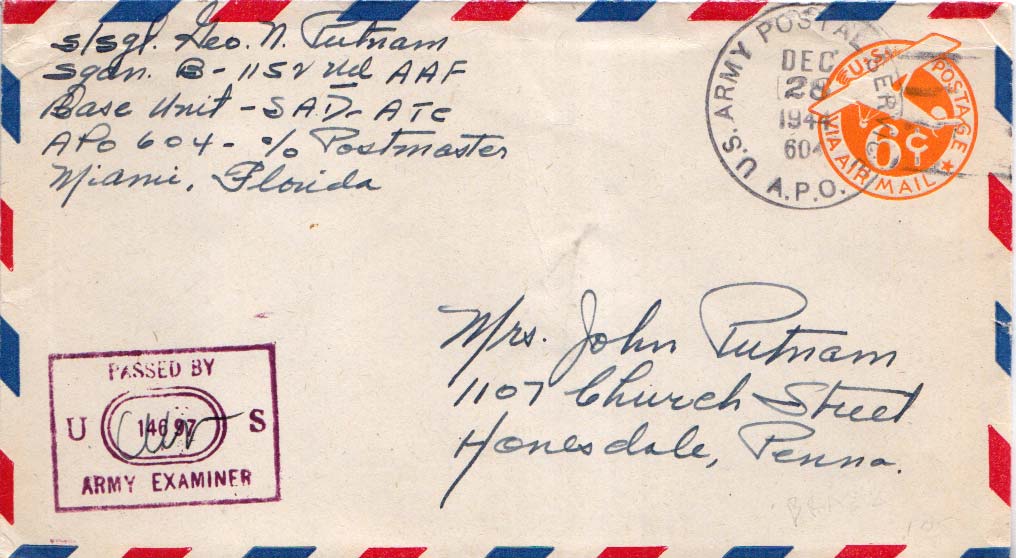 S/Sgt. Geo. N. Putnam
Sqdn. B - 1152nd AAF
Base Unit - SAD - ATC
APO 604 - % Postmaster
Miami, Florida
U.S. ARMY POSTAL SERVICE
DEC
28
1944
604
A.P.O.
U.S. POSTAGE
6¢
VIA AIR MAIL
Mrs. John Putnam
1107 Church Street
Honesdale, Penna.
PASSED BY
U 14697 S
ARMY EXAMINER